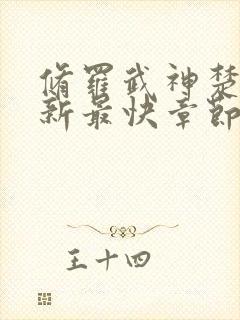 脩羅武神楚
新最快章節
王十四